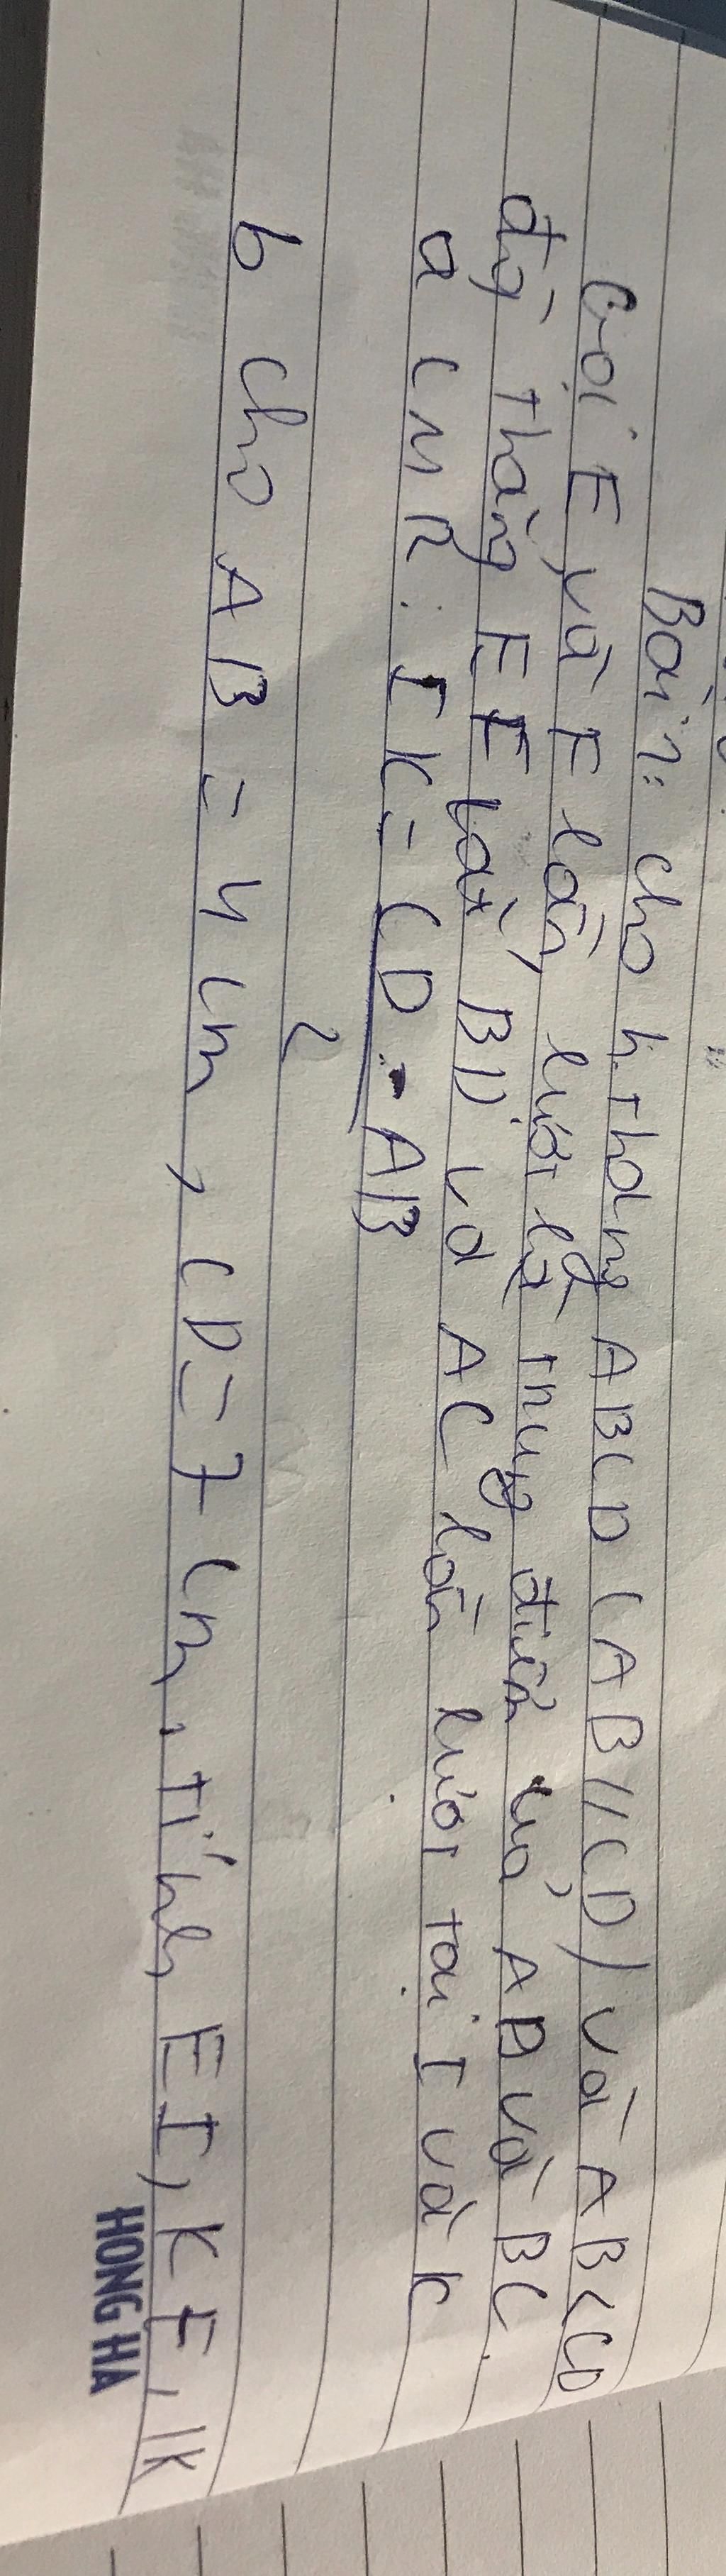 Bài 7: Cho h.thang ABCD (AB//CD) và AB<CD
Gọi E và F lần lượt là trung điểm của AD và BC.
đg thẳng EF cắt BD và AC lần lượt tại I và K
a CMR: IK = CD - AB
2
b Cho AB = 4 cm, CD = 7 cm. Tính EI, KF, IK
HONG HA